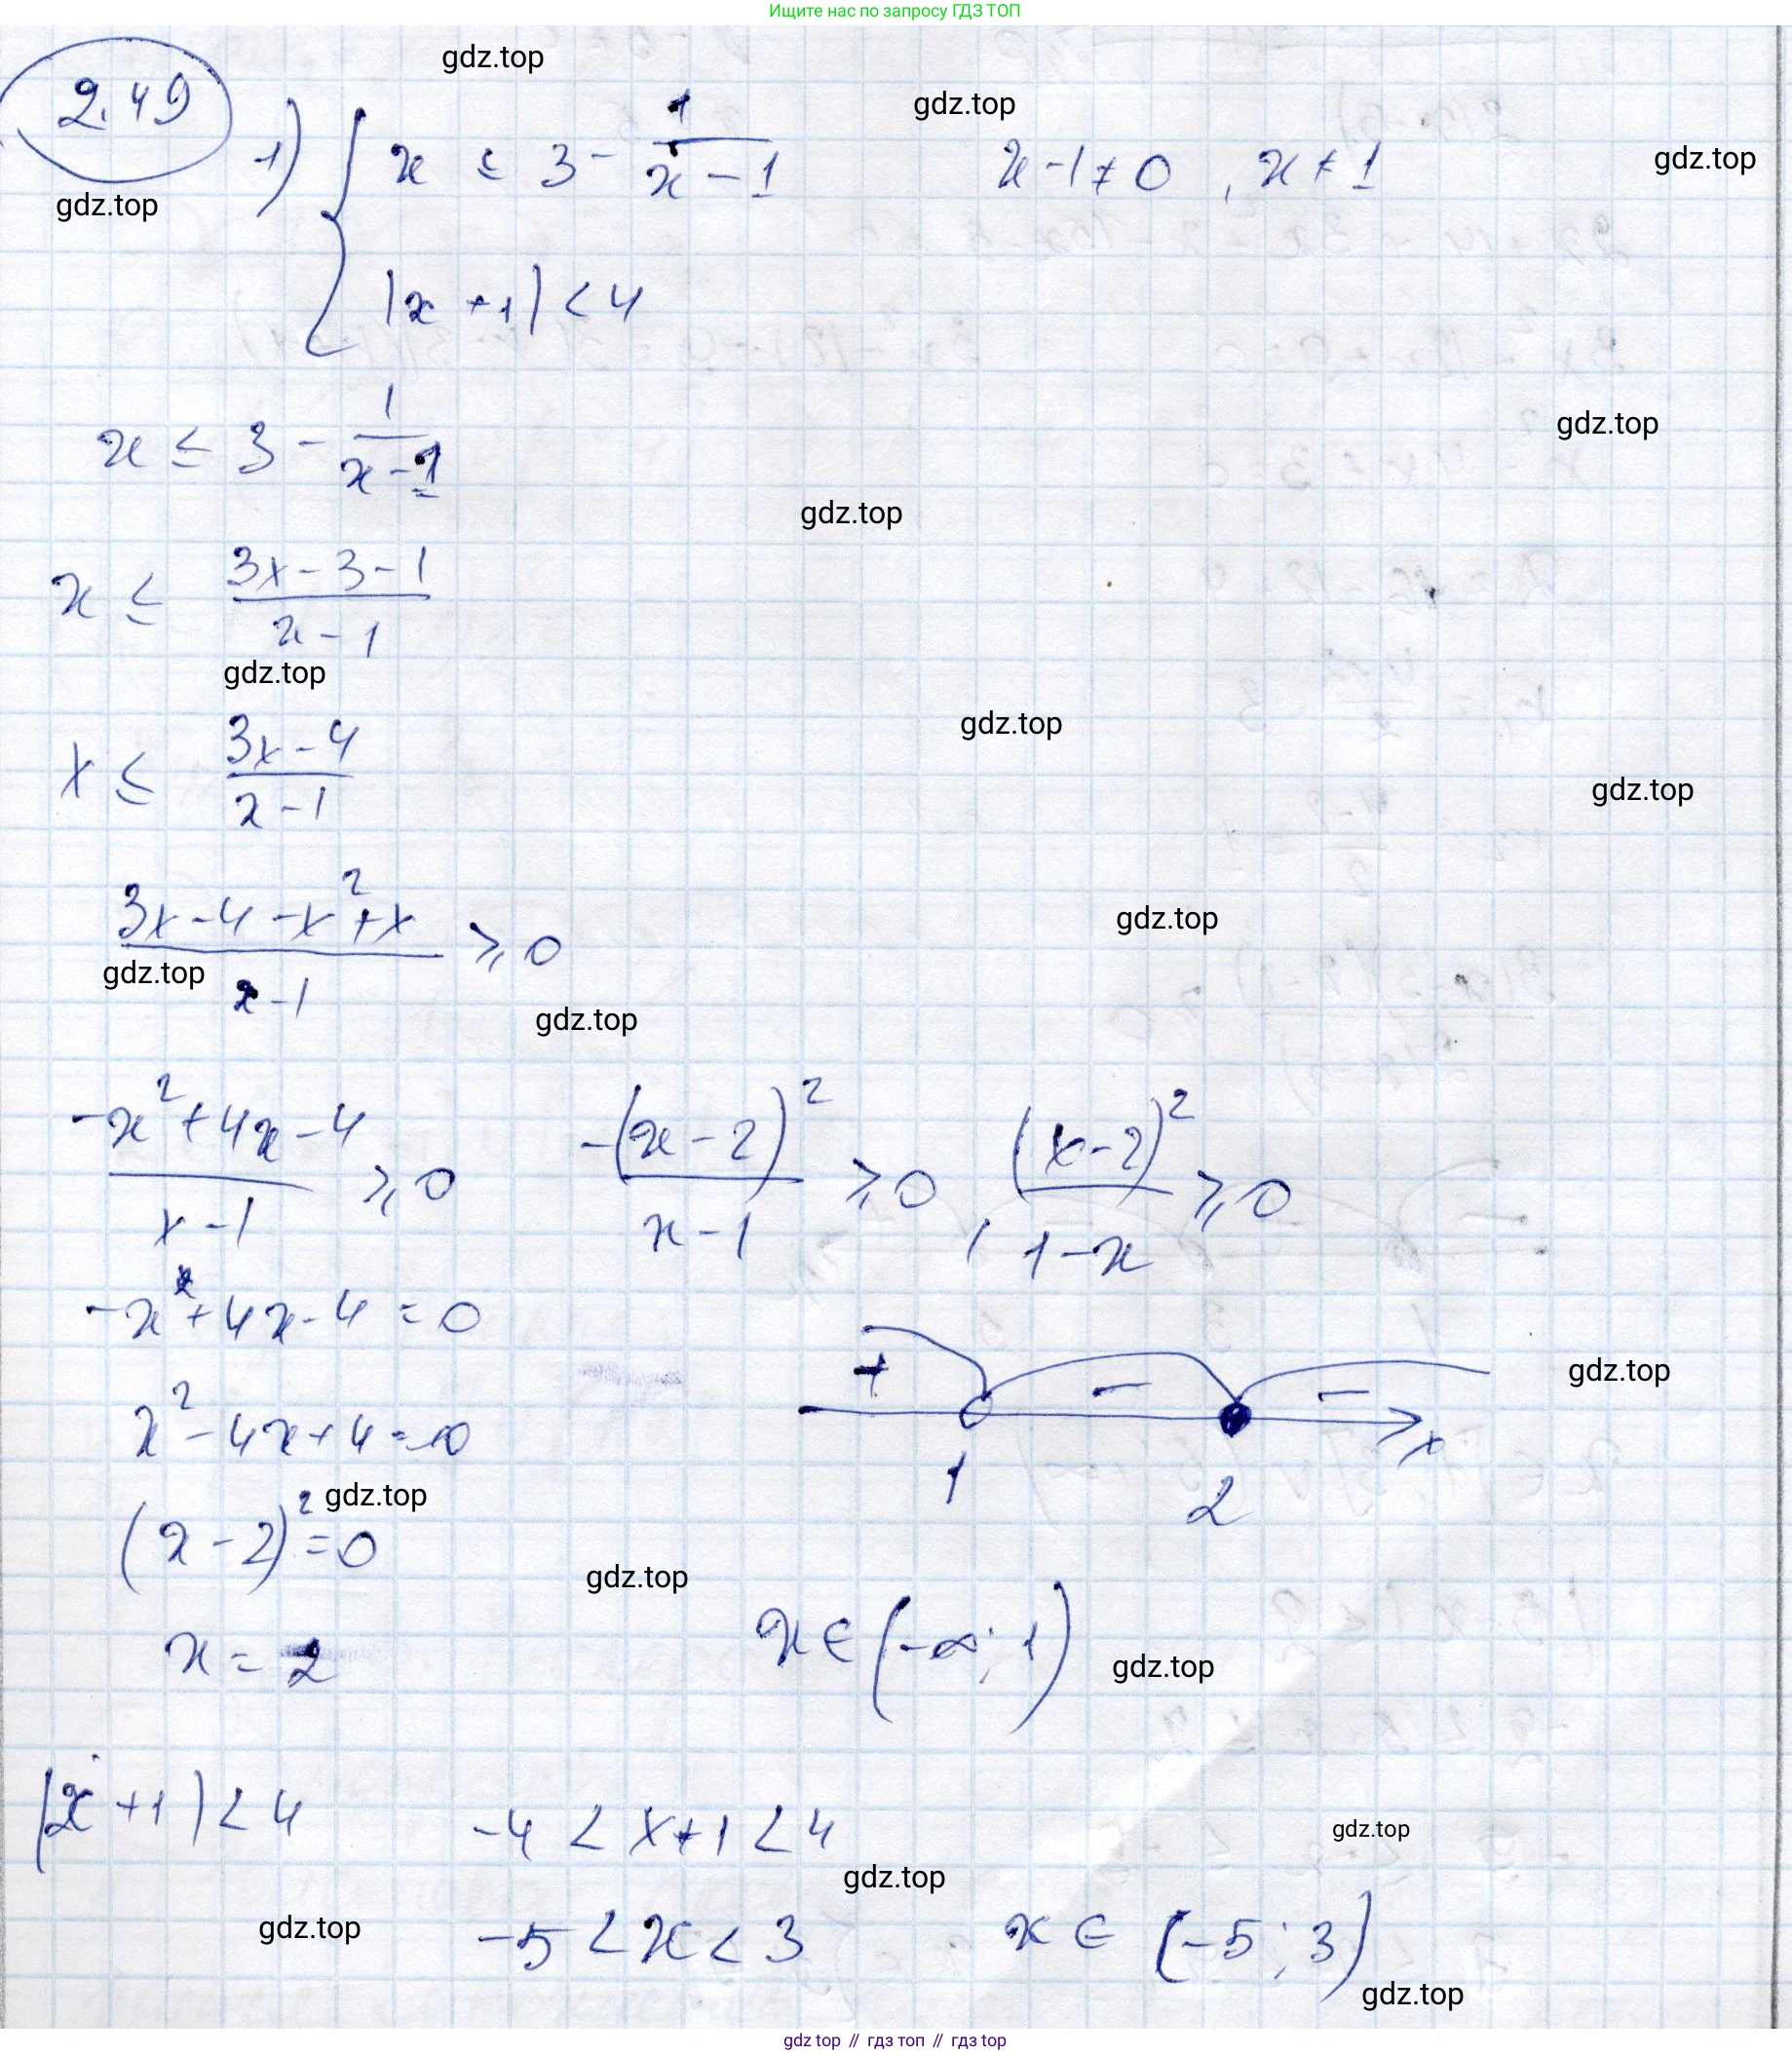 Ищите нас по запросу ГДЗ ТОП
gdz.top
2.49
gdz.top
1) { x ≤ 3 - 1/(x - 1)    x - 1 ≠ 0, x ≠ 1
gdz.top
gdz.top
|x + 1| < 4
x ≤ 3 - 1/(x - 1)
gdz.top
gdz.top
x ≤ (3x - 3 - 1)/(x - 1)
gdz.top
gdz.top
x ≤ (3x - 4)/(x - 1)
gdz.top
(3x - 4 - x² + x)/(x - 1) ≥ 0
gdz.top
gdz.top
gdz.top
(-x² + 4x - 4)/(x - 1) ≥ 0    -(x - 2)²/(x - 1) ≥ 0, (x - 2)²/(1 - x) ≥ 0
-x² + 4x - 4 = 0
+ - -
gdz.top
x² - 4x + 4 = 0
x
1 2
gdz.top
(x - 2)² = 0
gdz.top
x = 2    x ∈ (-∞; 1)
gdz.top
|x + 1| < 4    -4 < x + 1 < 4
gdz.top
gdz.top
gdz.top
-5 < x < 3    x ∈ (-5; 3)
gdz.top
gdz top // гдз топ // гдз top